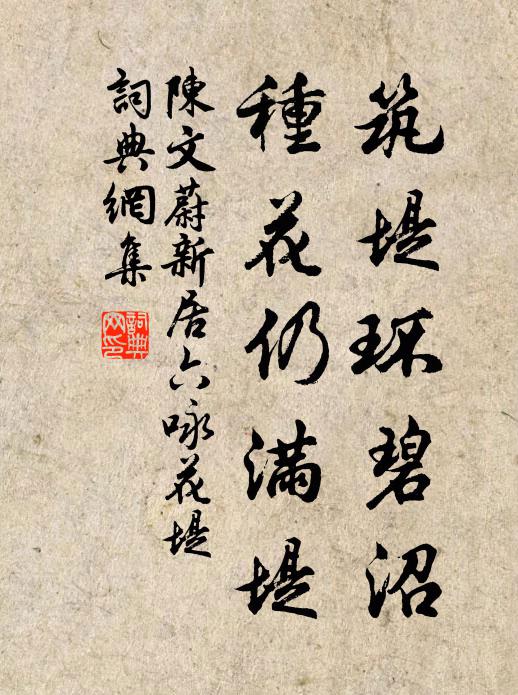 筑堤环碧沼
種花仍滿堤
陳文蔚新居六咏花堤
詞典網集
詞典網印